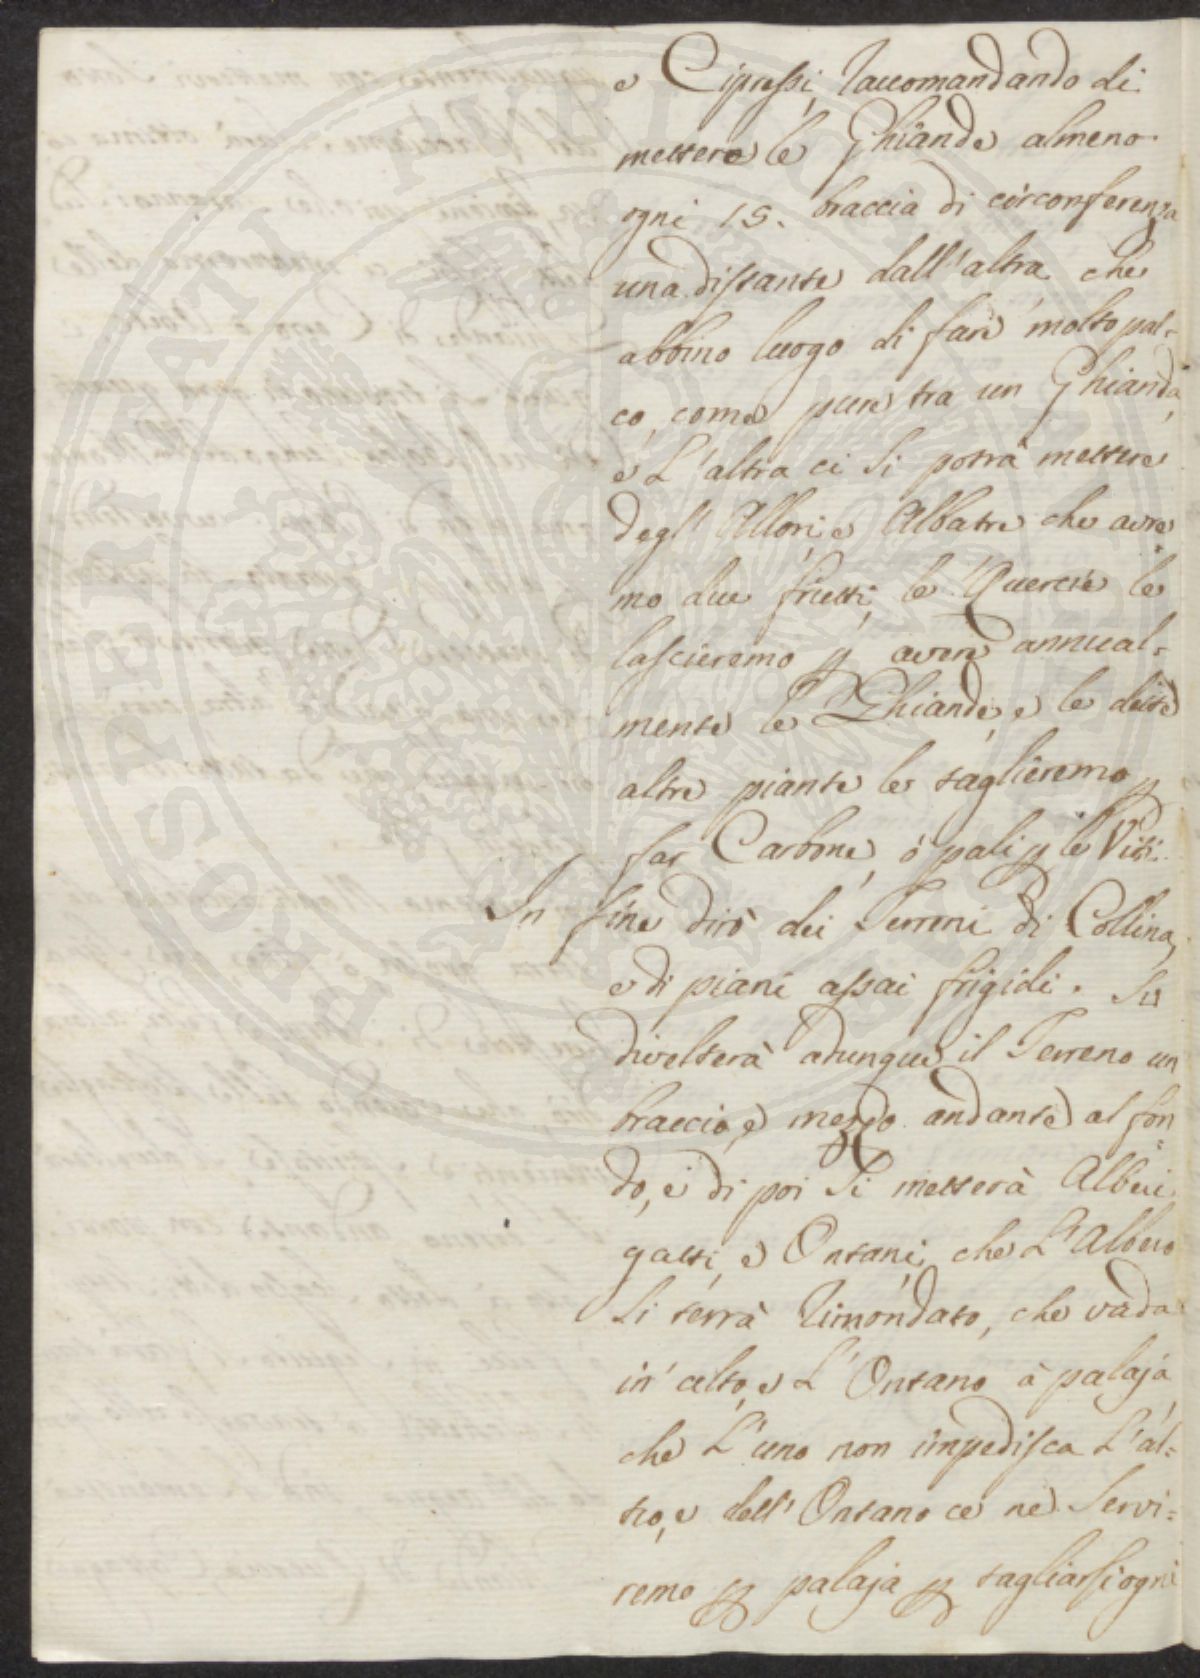 e Cipressi, raccomandando di
mettere le Ghiande almeno
ogni 15. braccia di circonferenza
una distante dall'altra che
abbino luogo di fare molto pal=
co, come pure tra un Ghianda,
e L'altra ci si potrà mettere
degl'Allori, e Albatre che avre=
mo due frutti, le Quercie le
lascieremo p avere annual=
mente le Ghiande, e le dette
altre piante le taglieremo p
far Carbone, ò pali p le Viti.
In fine dirò dei Terreni di Collina,
e di piani assai frigidi. Si
divelterà adunque il Terreno un
braccio, e mezzo andante al fon=
do, e di poi Si metterà Alberi
gatti, e Ontani, che L'Albero
Si terrà rimondato, che vada
in'alto, e L'Ontano à palaja
che L'uno non impedisca L'al=
tro, e dell'Ontano ce ne Servi=
remo p palaja p tagliarsi ogni
PROSPERITATI PUBLICAE AUGENDAE